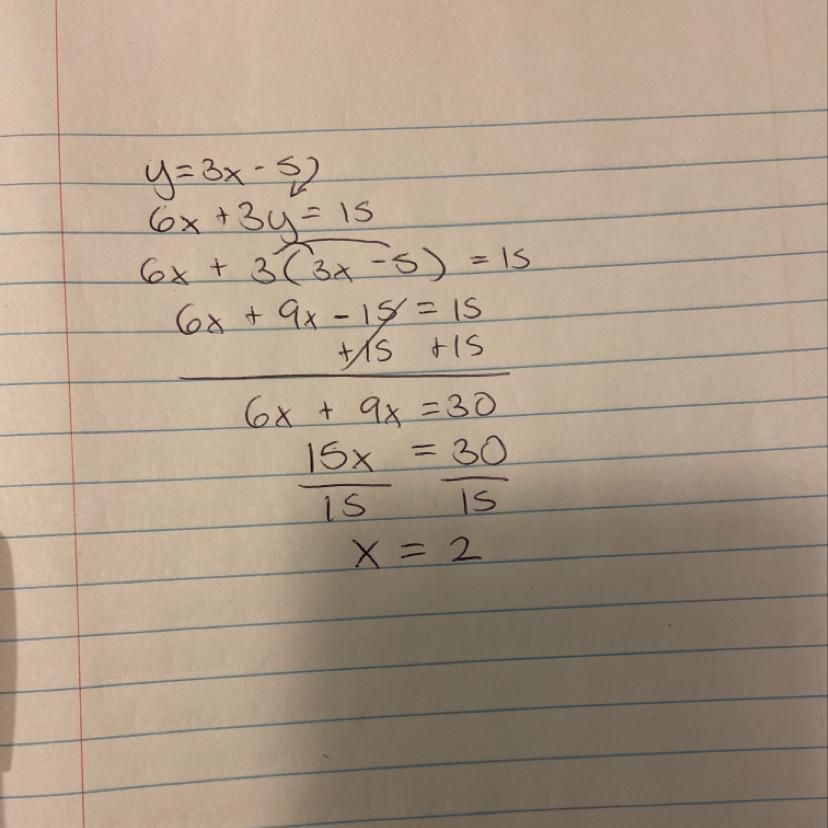 y=3x-5
6x+3y=15
6x + 3(3x-5) = 15
6x + 9x - 15 = 15
+15 +15
6x + 9x = 30
15x = 30
15 15
x = 2